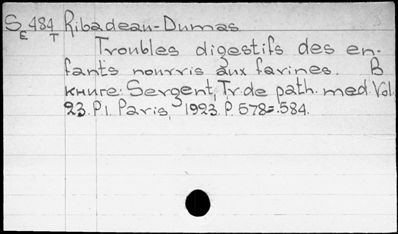 S E 484 T Ribadeau-Dumas
Troubles digestifs des en-
fants nourris aux farines. В
книге: Sergent, Tr. de path. med. Vol.
23. P. I. Paris, 1923. P. 578=584.